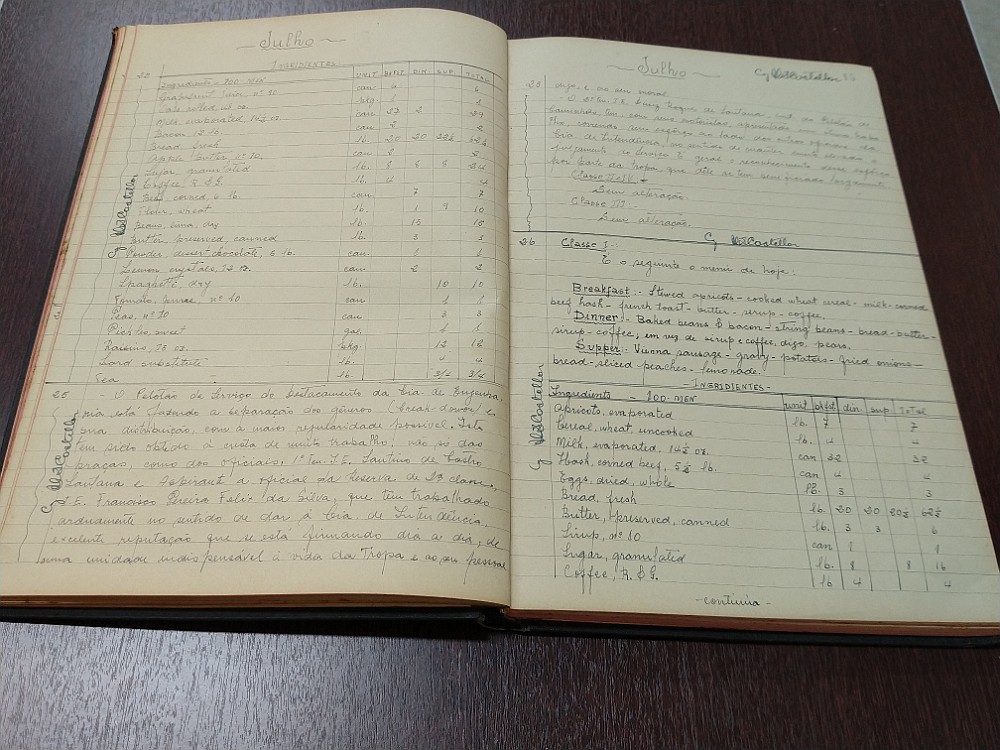 ~ Julho ~
INGRIDIENTES
22
Ingredients - 100 MEN UNIT BKFST DIN SUP TOTAL
Grapefruit juice, nº 10 can 6 6
Oats rolled 1
Milk evaporated 14½ oz. can 27 2 29
Bacon 12 lb. can 2 2
Bread fresh lb. 20 20 22½ 62½
Apple Butter nº 10, can 2 2
Sugar, granulated lb. 8 8 8 24
Coffee, R. & G. lb. 4 4
Beef corned, 6 lb. can 7 7
Flour, wheat lb. 1 9 10
Beans, lima, dry lb. 15 15
Butter, preserved, canned lb. 3 3
Powder, desert chocolate, 5 lb. can 1 1
Lemon crystals, 12 oz. can 2 2
Spaghetti, dry lb. 10 10
Tomato, nº 10 can
Peas, nº 10 can 3 3
Pickles, sweet gal. 1 1
Raisins, 15 oz. pkg. 12 12
Lard substitute lb. 4 4
Tea lb. 3/4 3/4
25 O Pelotão de Serviço do Destacamento da Cia de Engenha,
ria está fazendo a separação dos gêneros (break-down) e
sua distribuição, com a maior regularidade possivel. Isto
tem sido obtido à custa de muito trabalho, não só das
praças, como dos oficiais, 1º Ten. I.E. Santino de Castro
Santana e Aspirante a oficial da Reserva de 2ª classe,
I.E. Francisco Pereira Feliz da Silva, que têm trabalhado
arduamente no sentido de dar à Cia. de Intendência,
excelente reputação que se está firmando dia a dia, de
uma unidade indispensável à vida da Tropa e ao seu pessoal
~ Julho ~
25
- O 2º Ten. I.E. Roque de Santana,
caminhões, tem, com seus motoristas, apresentado um ótimo traba
lho, conexo seus esforços ao lado dos outros oficiais da
Cia de Intendência, no sentido de manter muito elevado o
julgamento do Serviço. É geral o reconhecimento desse esforço
por parte da tropa,
Classe II e IV:
Sem alteração.
Classe III:
Sem alteração.
26 Classe I:
É o seguinte o menú de hoje:
Breakfast:- Stewed apricots - cooked wheat cereal - milk - corned
beef hash - french toast - butter - sirup - coffee.
Dinner:- Baked beans & bacon - string beans - bread - butter -
sirup - coffee; em vez de sirup e coffee, digo, pears.
Supper:- Vienna sausage - gravy - potatoes - fried onions -
bread - sliced peaches - lemonade.
- INGRIDIENTES -
Ingredients - 100 MEN unit bkfst din. sup TOTAL
Apricots, evaporated lb. 7 7
Cereal, wheat, uncooked lb. 4 4
Milk, evaporated, 14½ oz. can 32 32
Hash, corned beef, 5½ lb. can 4 4
Eggs, dried, whole lb. 3 3
Bread, fresh lb. 20 20 22½ 62½
Butter, preserved, canned lb. 3 3 6
Sirup, nº 10 can 1 1
Sugar, granulated lb. 8 8 16
Coffee, R. & G. lb 4 4
- continúa -